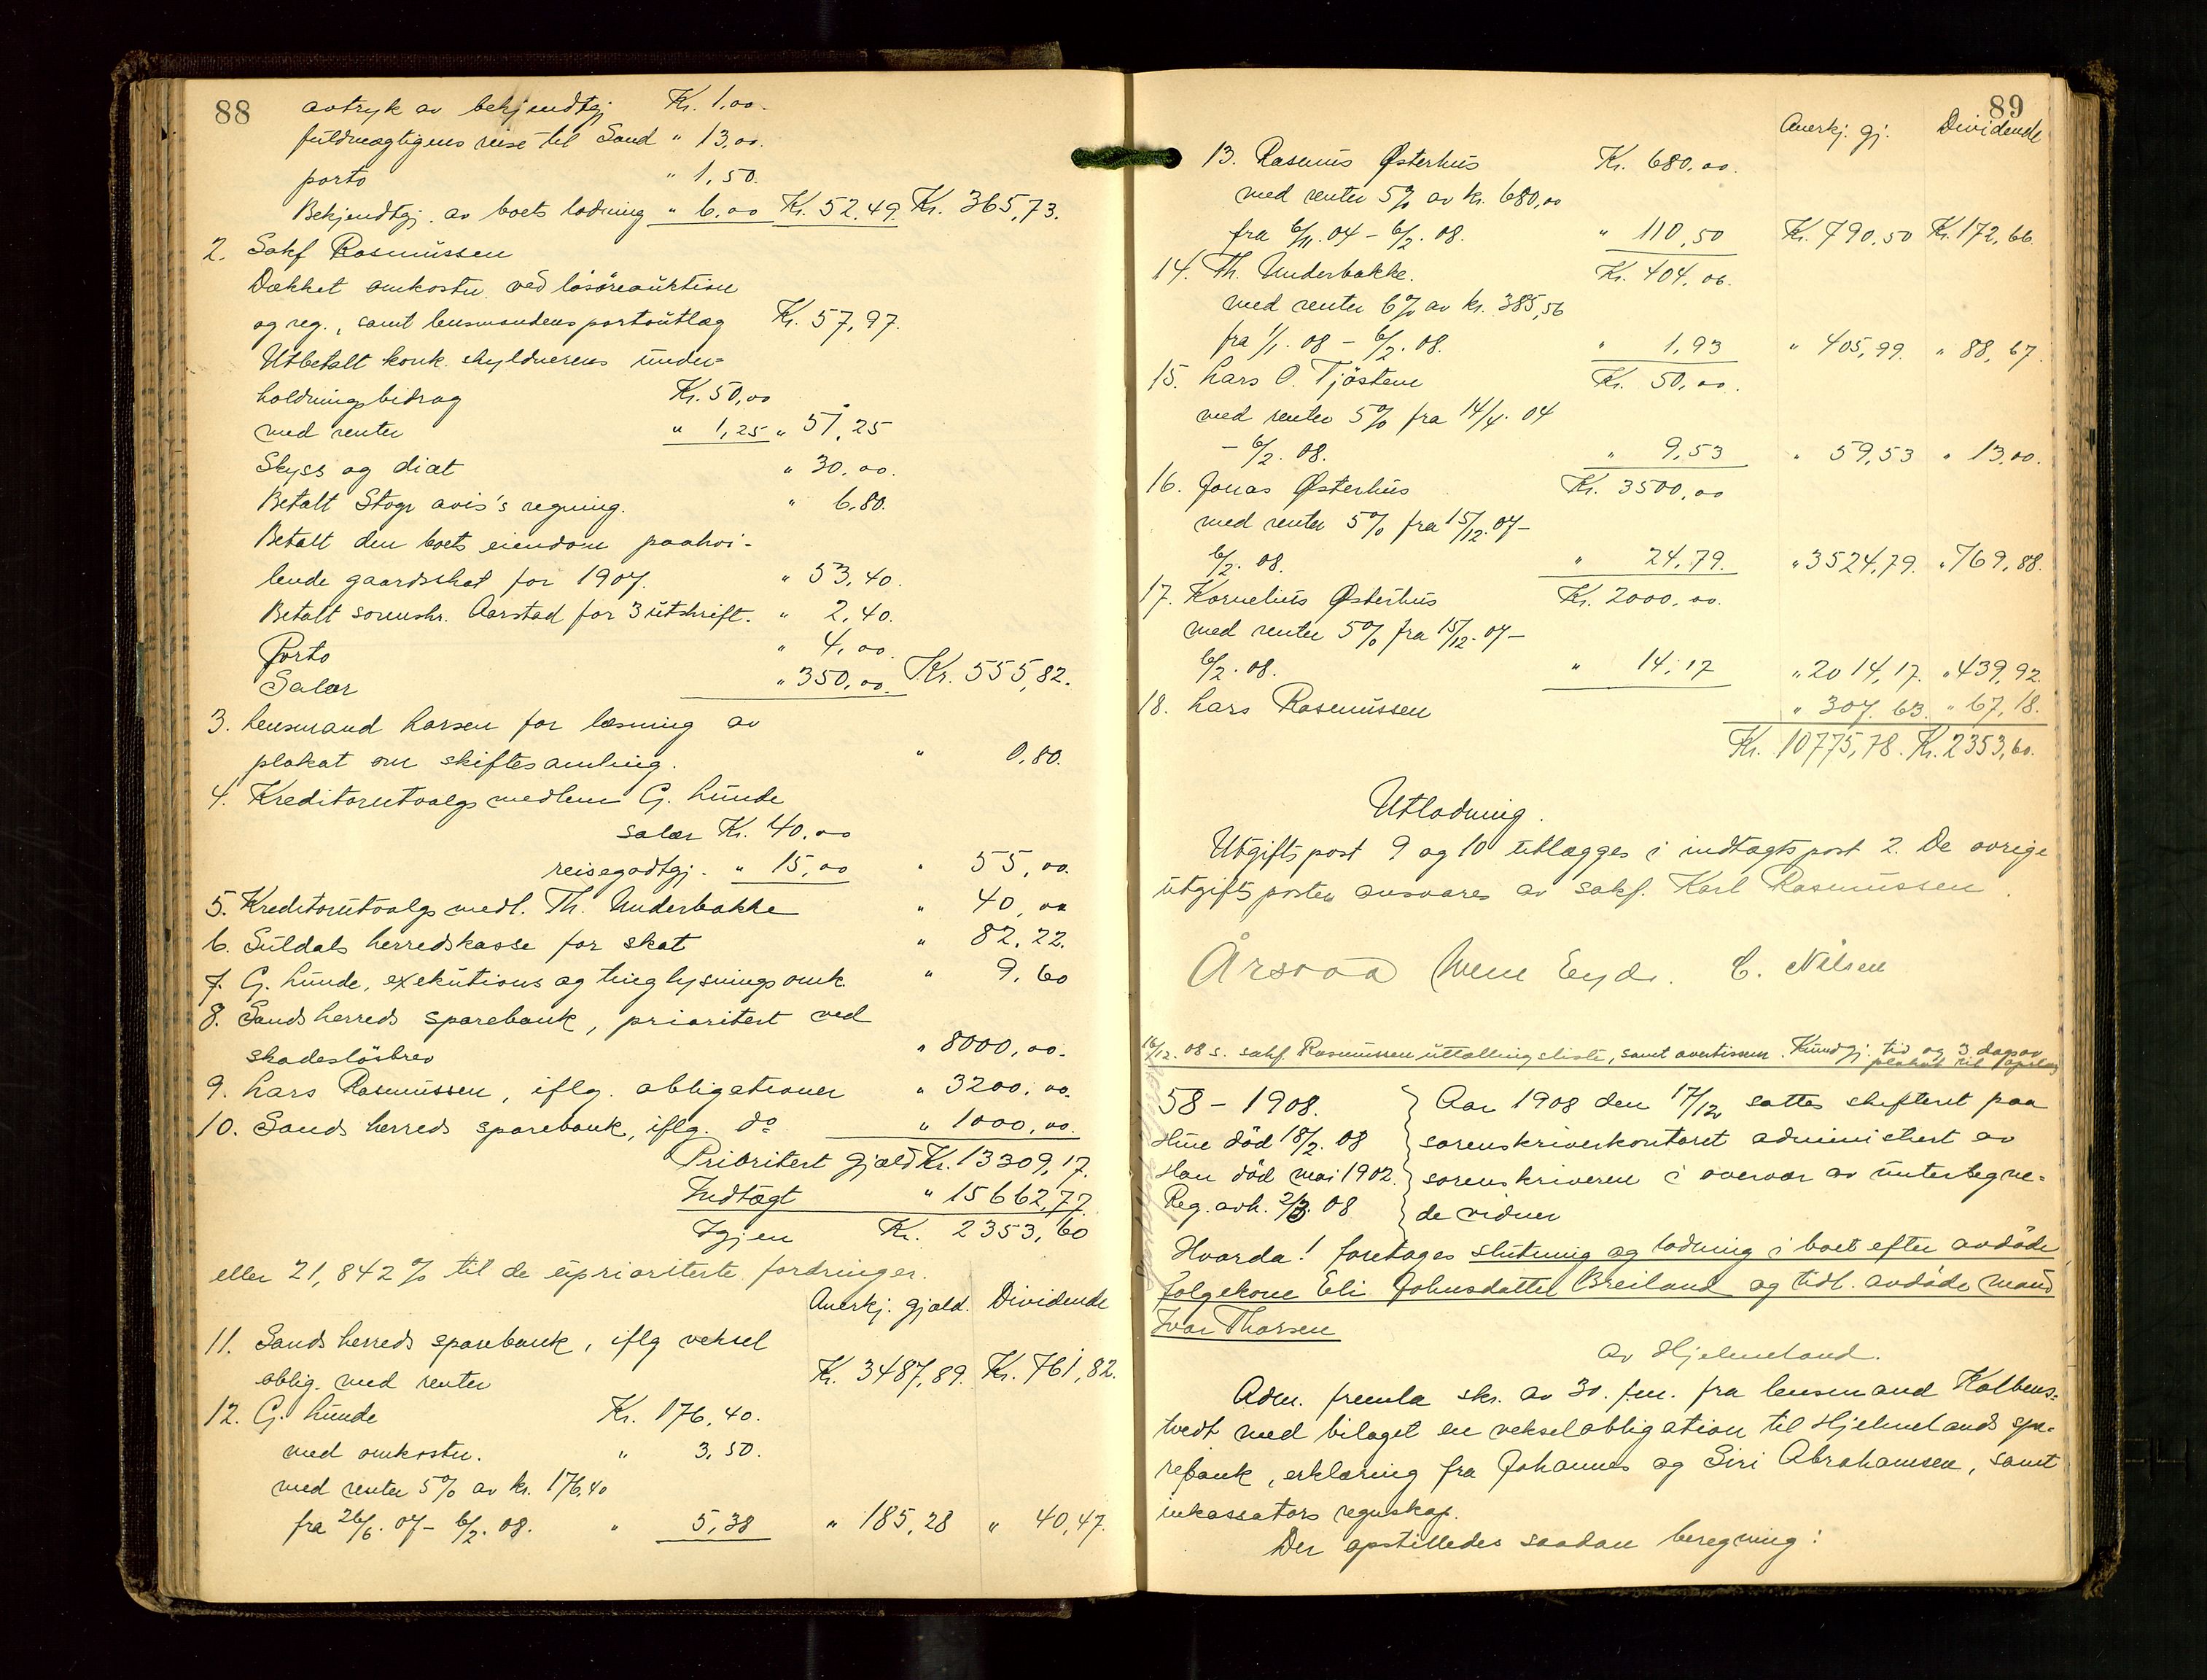 88
avtryk av bekjendtgj. Kr. 1,00.
fuldmægtigens reise til Sand " 13,00.
porto " 1,50.
Bekjendtgj. av boets lodning " 6,00 Kr. 52,49. Kr. 365,73.
2. Sakf Rasmussen
Dækket omkostn. ved løsøreauktion
og reg., samt lensmandens portoutlæg Kr. 57,97.
Utbetalt konk. skyldnerens under=
holdningsbidrag Kr. 50,00
med renter " 1,25 " 51,25
Skyss og diæt " 30,00.
Betalt Stvgr avis's regning. " 6,80.
Betalt den boets eiendom paahvi-
lende gaardsskat for 1907. " 53,40.
Betalt sorenskr. Aarstad for 3 utskrift. " 2,40.
Porto " 4,00.
Salær " 350,00. Kr. 555,82.
3. Lensmand Larsen for læsning av
plakat om skiftesamling. " 0,80.
4. Kreditorutvalgsmedlem G. Lunde
salær Kr. 40,00
reisegodtgj. " 15,00 " 55,00.
5. Kreditorutvalgsmedl. Th. Underbakke " 40,00
6. Suldals herredskasse for skat " 82,22.
7. G. Lunde, exekutions og tinglysningsomk. " 9,60
8. Sands herreds sparebank, prioritert ved
skadesløsbrev " 8000,00.
9. Lars Rasmussen, iflg. obligationer " 3200,00.
10. Sands herreds sparebank, iflg. do " 1000,00.
Prioritert gjæld Kr. 13309,17.
Indtægt " 15662,77
Igjen Kr. 2353,60
eller 21,842 % til de uprioriterte fordringer.
Anerkj. gjæld. Dividende
11. Sands herreds sparebank, iflg veksel
oblig. med renter Kr. 3487,89. Kr. 761,82.
12. G. Lunde Kr. 176,40.
med omkostn. " 3,50.
med renter 5% av kr. 176,40
fra 26/6. 07 - 6/2. 08. " 5,38 " 185,28 " 40,47.
89
Anerkj. gj. Dividende
13. Rasmus Østerhus Kr. 680,00.
med renter 5% av kr. 680,00
fra 6/11. 04 - 6/2. 08. " 110,50 Kr. 790,50 Kr. 172,66.
14. Th. Underbakke. Kr. 404,06.
med renter 6% av kr. 385,56
fra 1/1. 08 - 6/2. 08. " 1,93 " 405,99. " 88,67.
15. Lars O. Tjøstem Kr. 50,00.
med renter 5% fra 14/4. 04
- 6/2. 08. " 9,53 " 59,53 " 13,00.
16. Jonas Østerhus Kr. 3500,00
med renter 5% fra 15/12. 07-
6/2. 08. " 24,79. " 3524,79. " 769,88.
17. Kornelius Østerhus Kr. 2000,00.
med renter 5% fra 15/12. 07-
6/2. 08. " 14,17 " 2014,17. " 439,92.
18. Lars Rasmussen " 307,63. " 67,18.
Kr. 10775,78. Kr. 2353,60.
Utlodning.
Utgiftspost 9 og 10 utlægges i indtægtspost 2. De øvrige
utgiftsposter ansvares av sakf. Karl Rasmussen.
Eyde. C. Nilsen
16/12. 08 s. sakf Rasmussen uttællingsliste, samt avertissem. Kundgj. tid og 3 dag av
plakat til
58 - 1908.
Hun død 18/2. 08
Han død mai 1902.
Reg. avh. 2/3. 08
Aar 1908 den 17/12 sattes skifteret paa
sorenskriverkontoret administrert av
sorenskriveren i overvær av underteg ne=
de vidner
Hvorda! foretages slutning og lodning i boet efter avdøde
følgekone Eli Johnsdatter Breiland og tidl. avdøde mand
Ivar Thorsen
av Hjelmeland.
Adm. fremla skr. av 30. f.m. fra lensmand Kolbens=
tvedt med bilaget en vekselobligation til Hjelmelands spa=
rebank, erklæring fra Johannes og Siri Abrahamsen, samt
inkassators regnskap.
Der opstilledes saadan beregning: